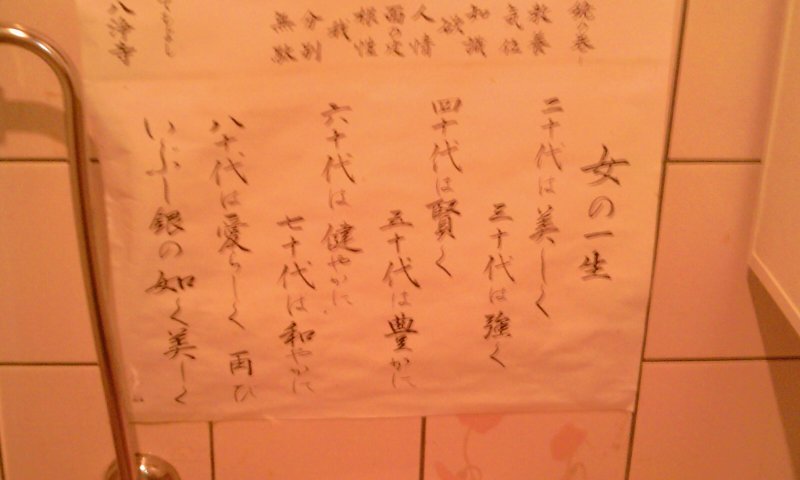 教養
気位
知識
欲
人情
面の皮
様性
我
分別
無駄
八浄寺
女の一生
二十代は美しく
三十代は強く
四十代は賢く
五十代は豊かに
六十代は健やかに
七十代は和やかに
八十代は愛らしく 再び
いぶし銀の如く美しく